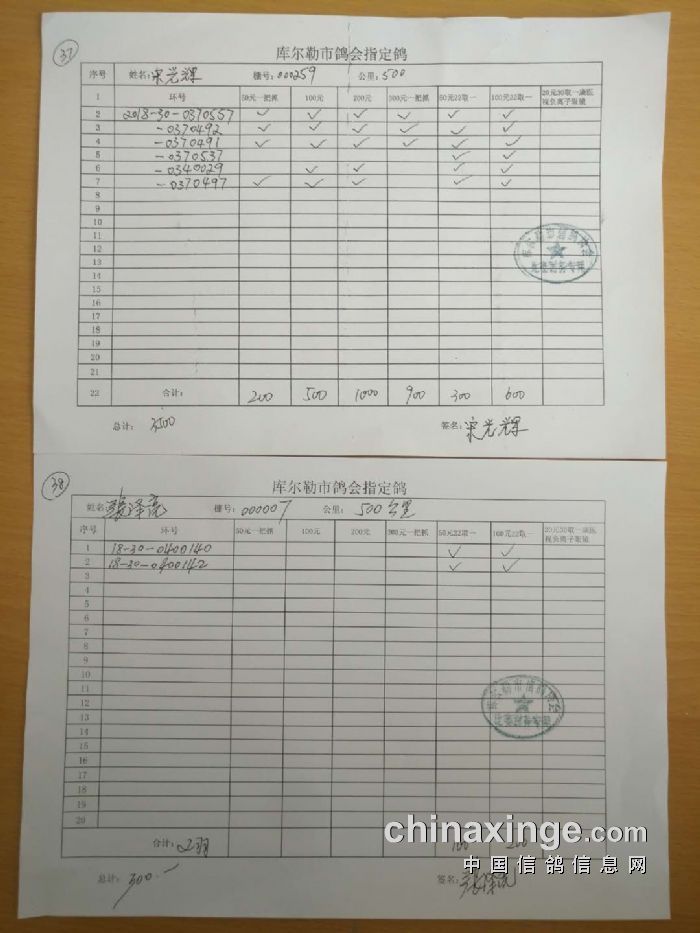 37
库尔勒市鸽会指定鸽
序号 姓名: 宋光辉 棚号: 000259 公里: 500
1 环号 50元一把抓 100元 200元 300元一把抓 50元22取一 100元32取一 20元30取一康医视负离子眼镜
2 2018-30-0370557 ✓ ✓ ✓ ✓ ✓ ✓
3 -0370492 ✓ ✓ ✓ ✓ ✓ ✓
4 -0370491 ✓ ✓ ✓ ✓ ✓ ✓
5 -0370537 ✓ ✓
6 -0340029 ✓ ✓ ✓ ✓
7 -0370497 ✓ ✓ ✓ ✓ ✓
8
9
10
11
12
13
14
15
16
17
18
19
20
21
22 合计: 200 500 1000 900 300 600
总计: 3500 签名: 宋光辉
38
库尔勒市鸽会指定鸽
姓名 棚号: 000007 公里: 500公里
序号 环号 50元一把抓 100元 200元 300元一把抓 50元22取一 100元22取一 20元30取一康医视负离子眼镜
1 18-30-0400140 ✓ ✓
2 18-30-0400142 ✓ ✓
3
4
5
6
7
8
9
10
11
12
13
14
15
16
17
18
19
20
合计: 2羽 100 200
总计: 300.- 签名:
chinaxinge.com
中国信鸽信息网